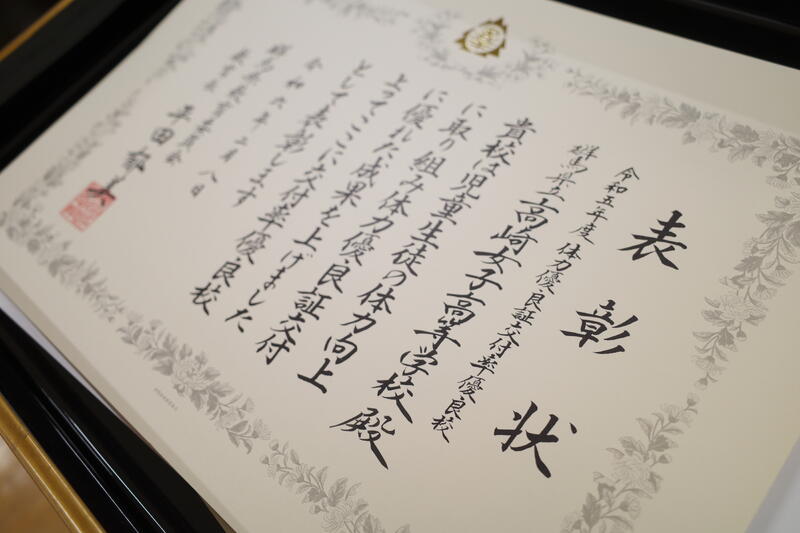 表彰状
令和五年度 体力優良証交付率優良校
群馬県立高崎女子高等学校殿
貴校は児童生徒の体力向上
に取り組み体力優良証交付
に優れた成果を上げました
よってここに交付率優良校
として表彰します
令和六年二月八日
群馬県教育委員会
教育長 平田郁美